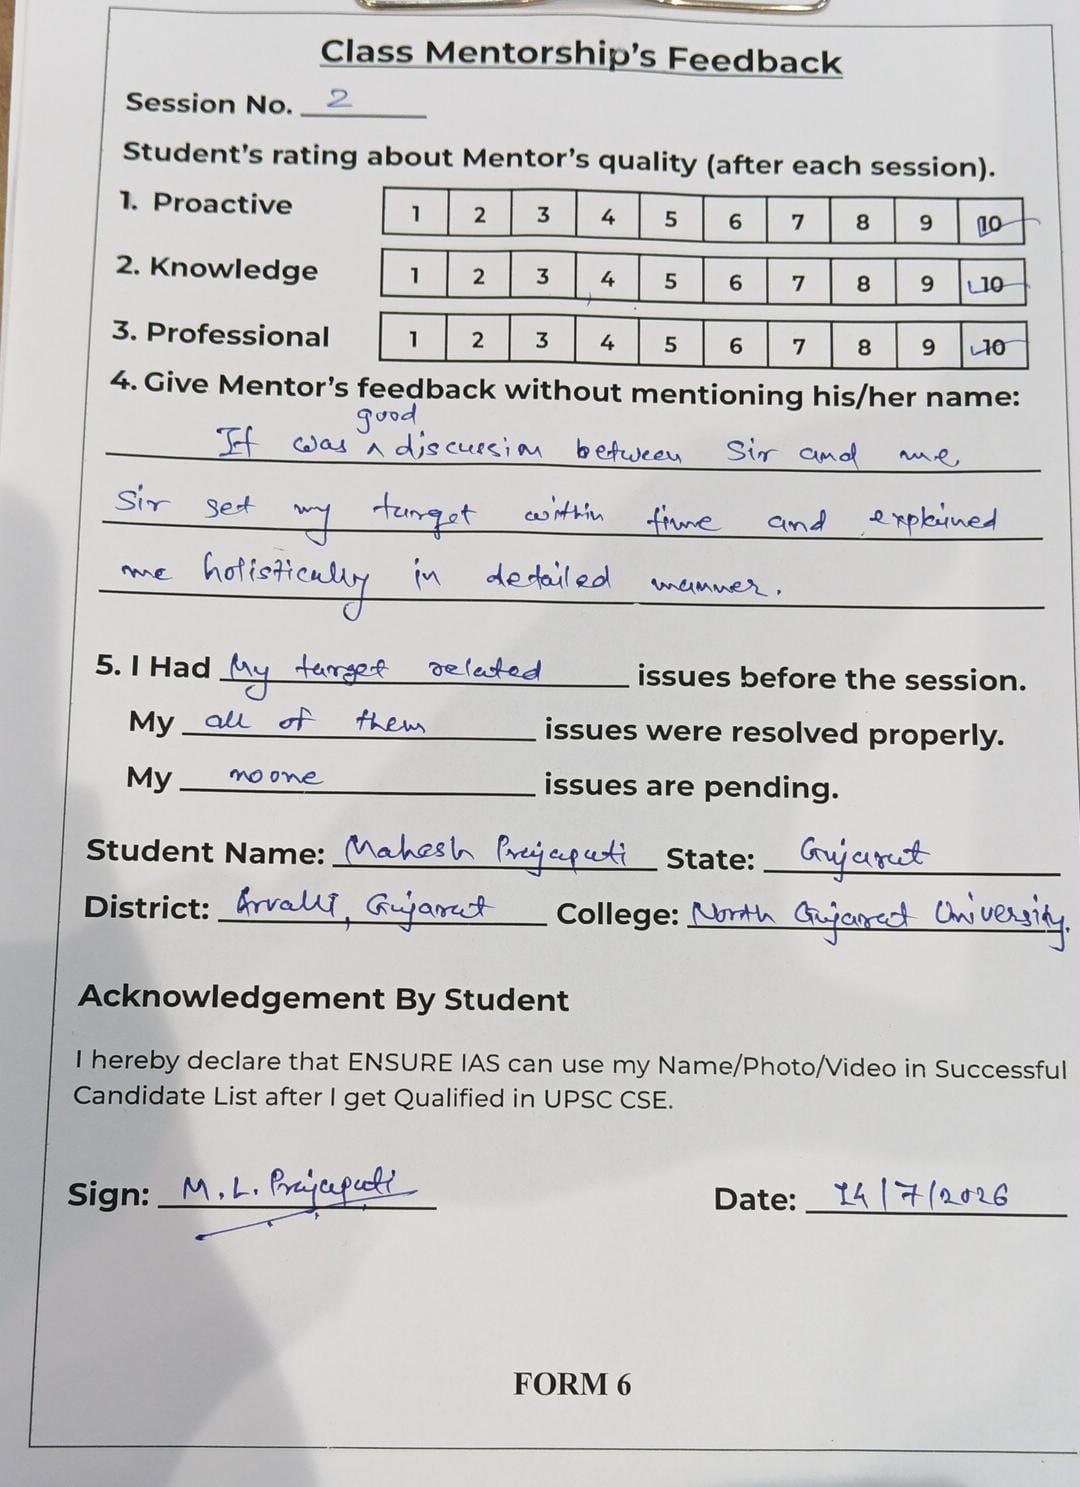 Class Mentorship's Feedback
Session No. 2
Student's rating about Mentor's quality (after each session).
1. Proactive 1 2 3 4 5 6 7 8 9 10
2. Knowledge 1 2 3 4 5 6 7 8 9 10
3. Professional 1 2 3 4 5 6 7 8 9 10
4. Give Mentor's feedback without mentioning his/her name:
good
It was ^ discussion between Sir and me,
Sir set my target within time and explained
me holistically in detailed manner.
5. I Had My target related issues before the session.
My all of them issues were resolved properly.
My no one issues are pending.
Student Name: Mahesh Prajapati State: Gujarat
District: Arvalli, Gujarat College: North Gujarat University.
Acknowledgement By Student
I hereby declare that ENSURE IAS can use my Name/Photo/Video in Successful
Candidate List after I get Qualified in UPSC CSE.
Sign: M. L. Prajapati Date: 14/7/2026
FORM 6